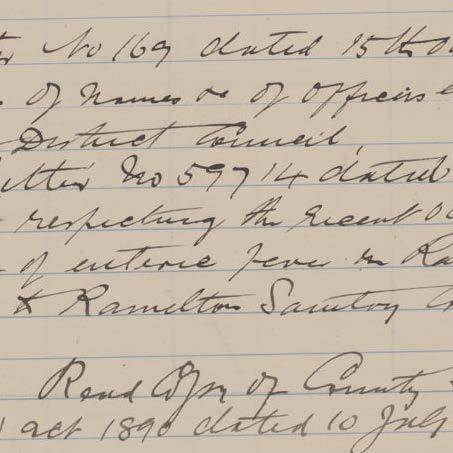 No 169 dated 15th
of names &c of officers
District Council,
Letter No 59714 dated
respecting the recent
of enteric fever in Ra
& Ramelton Sanitary
Read Copy of County
act 1890 dated 10 July